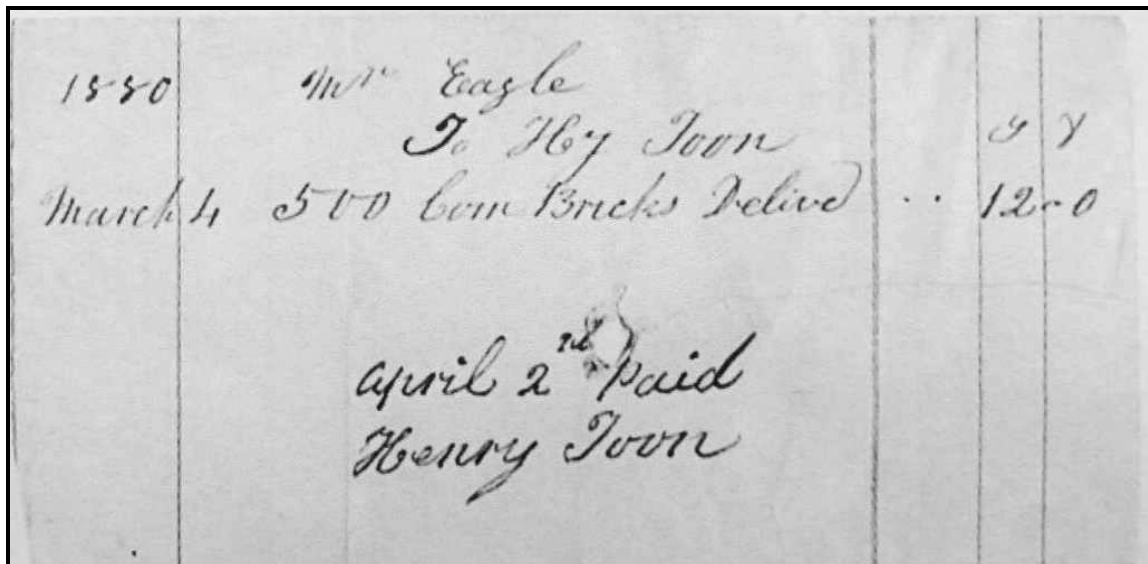 1880 Mr Eagle
To Hy Toon
March 4 500 Com Bricks Delivd .. 12 - 0
April 2nd Paid
Henry Toon